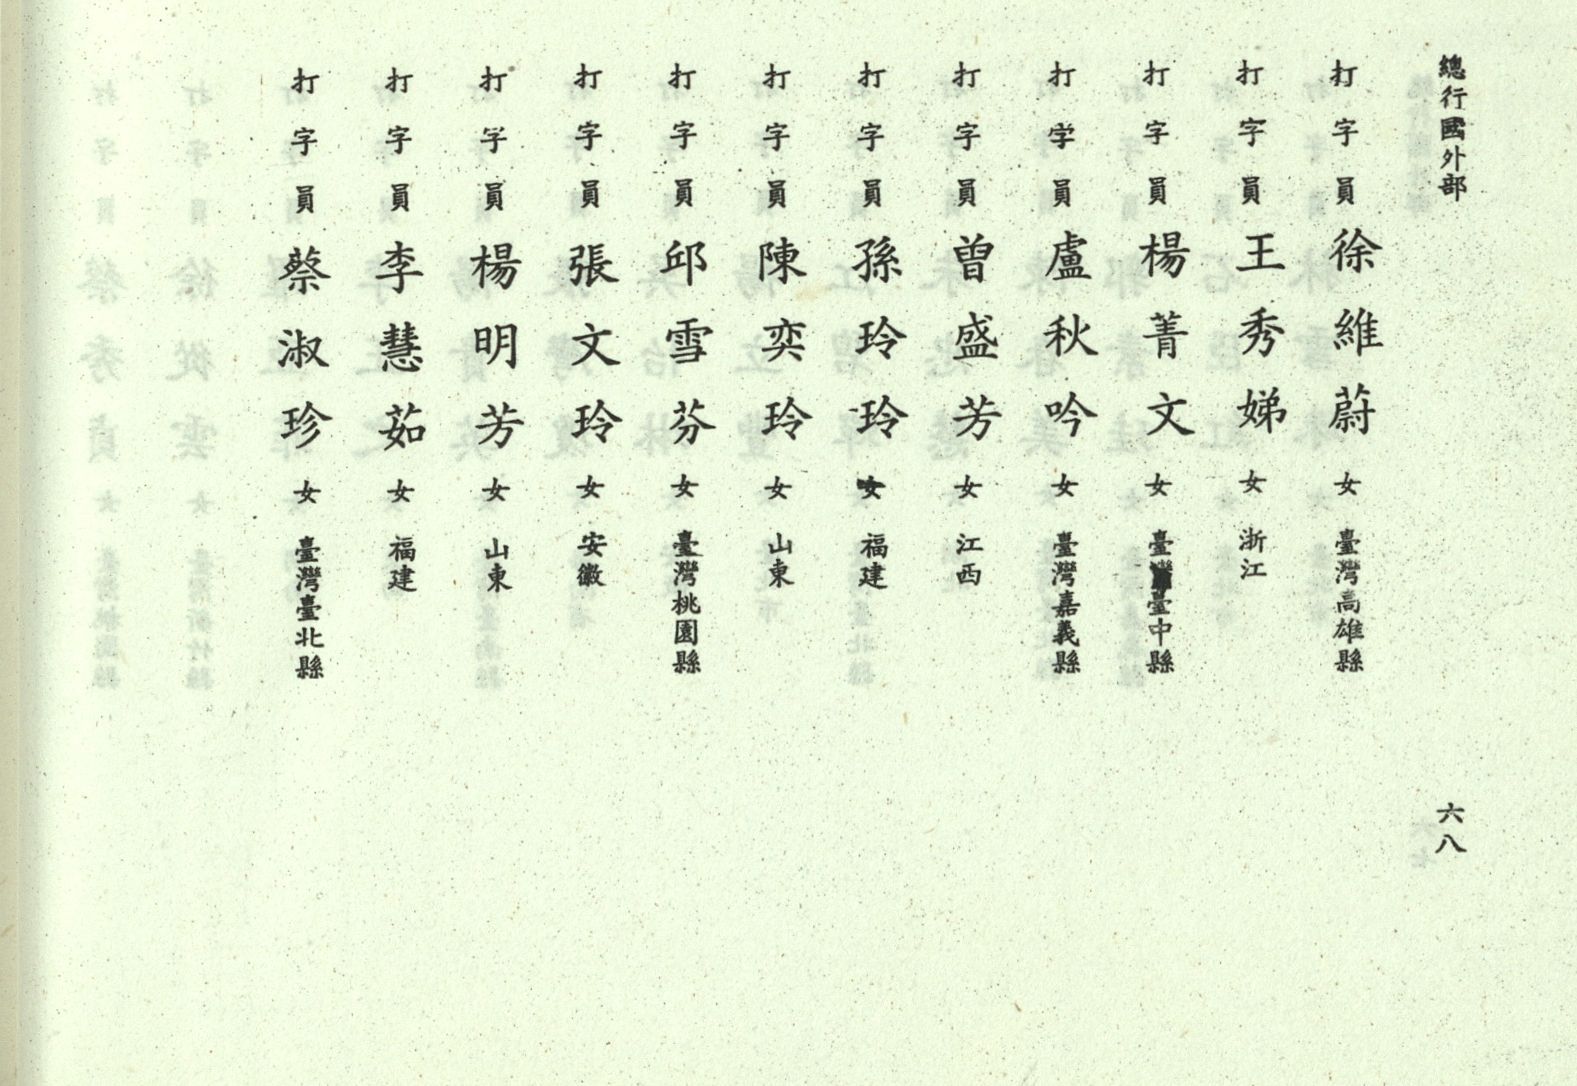 總行國外部
打字員 徐維蔚 女 臺灣高雄縣
打字員 王秀娣 女 浙江
打字員 楊菁文 女 臺灣臺中縣
打字員 盧秋吟 女 臺灣嘉義縣
打字員 曾盛芳 女 江西
打字員 孫玲玲 女 福建
打字員 陳奕玲 女 山東
打字員 邱雪芬 女 臺灣桃園縣
打字員 張文玲 女 安徽
打字員 楊明芳 女 山東
打字員 李慧茹 女 福建
打字員 蔡淑珍 女 臺灣臺北縣
六八